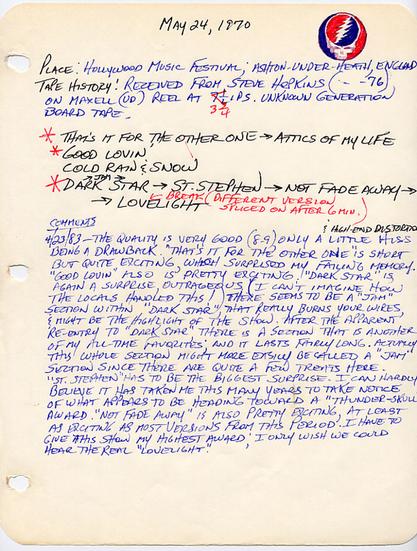 MAY 24, 1970
PLACE: HOLLYWOOD MUSIC FESTIVAL; ASHTON-UNDER-HEATH, ENGLAND
TAPE HISTORY: RECEIVED FROM STEVE HOPKINS ( - -76)
ON MAXELL (UD) REEL AT 3¾ I.P.S. UNKNOWN GENERATION
BOARD TAPE.
* THAT'S IT FOR THE OTHER ONE → ATTICS OF MY LIFE
* GOOD LOVIN'
COLD RAIN & SNOW
JAM
* DARK STAR → ST. STEPHEN → NOT FADE AWAY →
→ LOVELIGHT BREAK (DIFFERENT VERSION
SPLICED ON AFTER 6 MIN.)
COMMENTS
& HIGH-END DISTORTIO
4/23/83 – THE QUALITY IS VERY GOOD (8.9) ONLY A LITTLE HISS
BEING A DRAWBACK. "THAT'S IT FOR THE OTHER ONE" IS SHORT
BUT QUITE EXCITING, WHICH SURPRISED MY FAILING MEMORY.
"GOOD LOVIN'" ALSO IS PRETTY EXCITING. "DARK STAR" IS
AGAIN A SURPRISE, OUTRAGEOUS (I CAN'T IMAGINE HOW
THE LOCALS HANDLED THIS!) THERE SEEMS TO BE A "JAM"
SECTION WITHIN "DARK STAR" THAT REALLY BURNS YOUR WIRES
& MIGHT BE THE HIGHLIGHT OF THE SHOW. AFTER THE APPARENT
RE-ENTRY TO "DARK STAR" THERE IS A SECTION THAT IS ANOTHER
OF MY ALL-TIME FAVORITES; AND IT LASTS FAIRLY LONG. ACTUALLY
THIS WHOLE SECTION MIGHT MORE EASILY BE CALLED A "JAM"
SECTION SINCE THERE ARE QUITE A FEW TREATS HERE.
"ST. STEPHEN" HAS TO BE THE BIGGEST SURPRISE. I CAN HARDLY
BELIEVE IT HAS TAKEN ME THIS MANY YEARS TO TAKE NOTICE
OF WHAT APPEARS TO BE HEADING TOWARD A "THUNDER-SKULL
AWARD. "NOT FADE AWAY" IS ALSO PRETTY EXCITING, AT LEAST
AS EXCITING AS MOST VERSIONS FROM THIS PERIOD. I HAVE TO
GIVE THIS SHOW MY HIGHEST AWARD; I ONLY WISH WE COULD
HEAR THE REAL "LOVELIGHT".